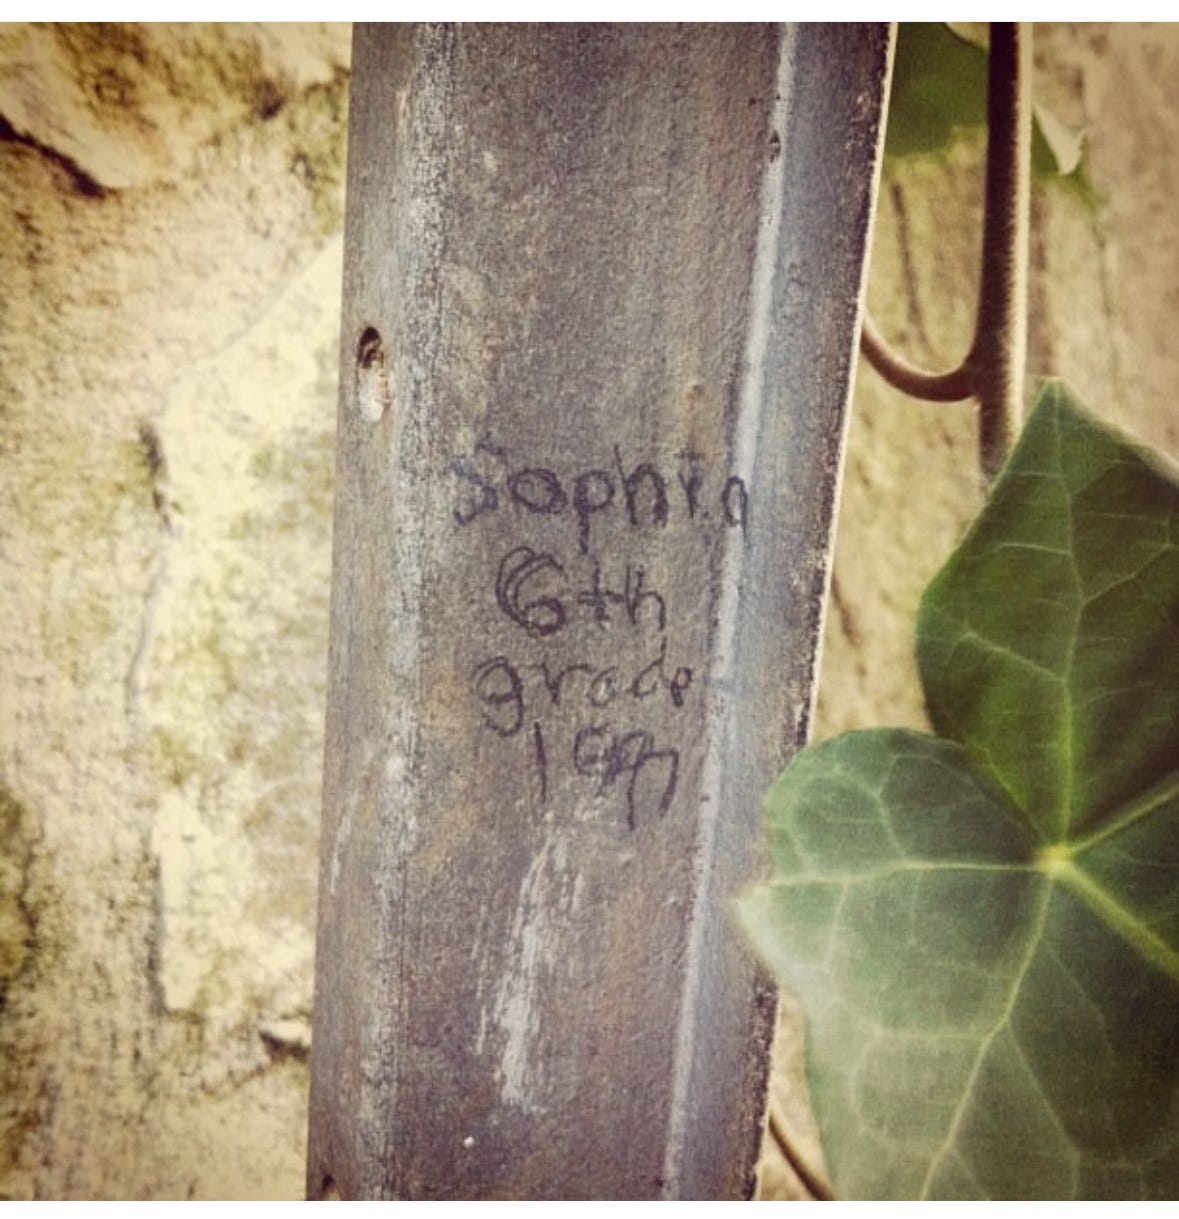 Sophia
6th
grade